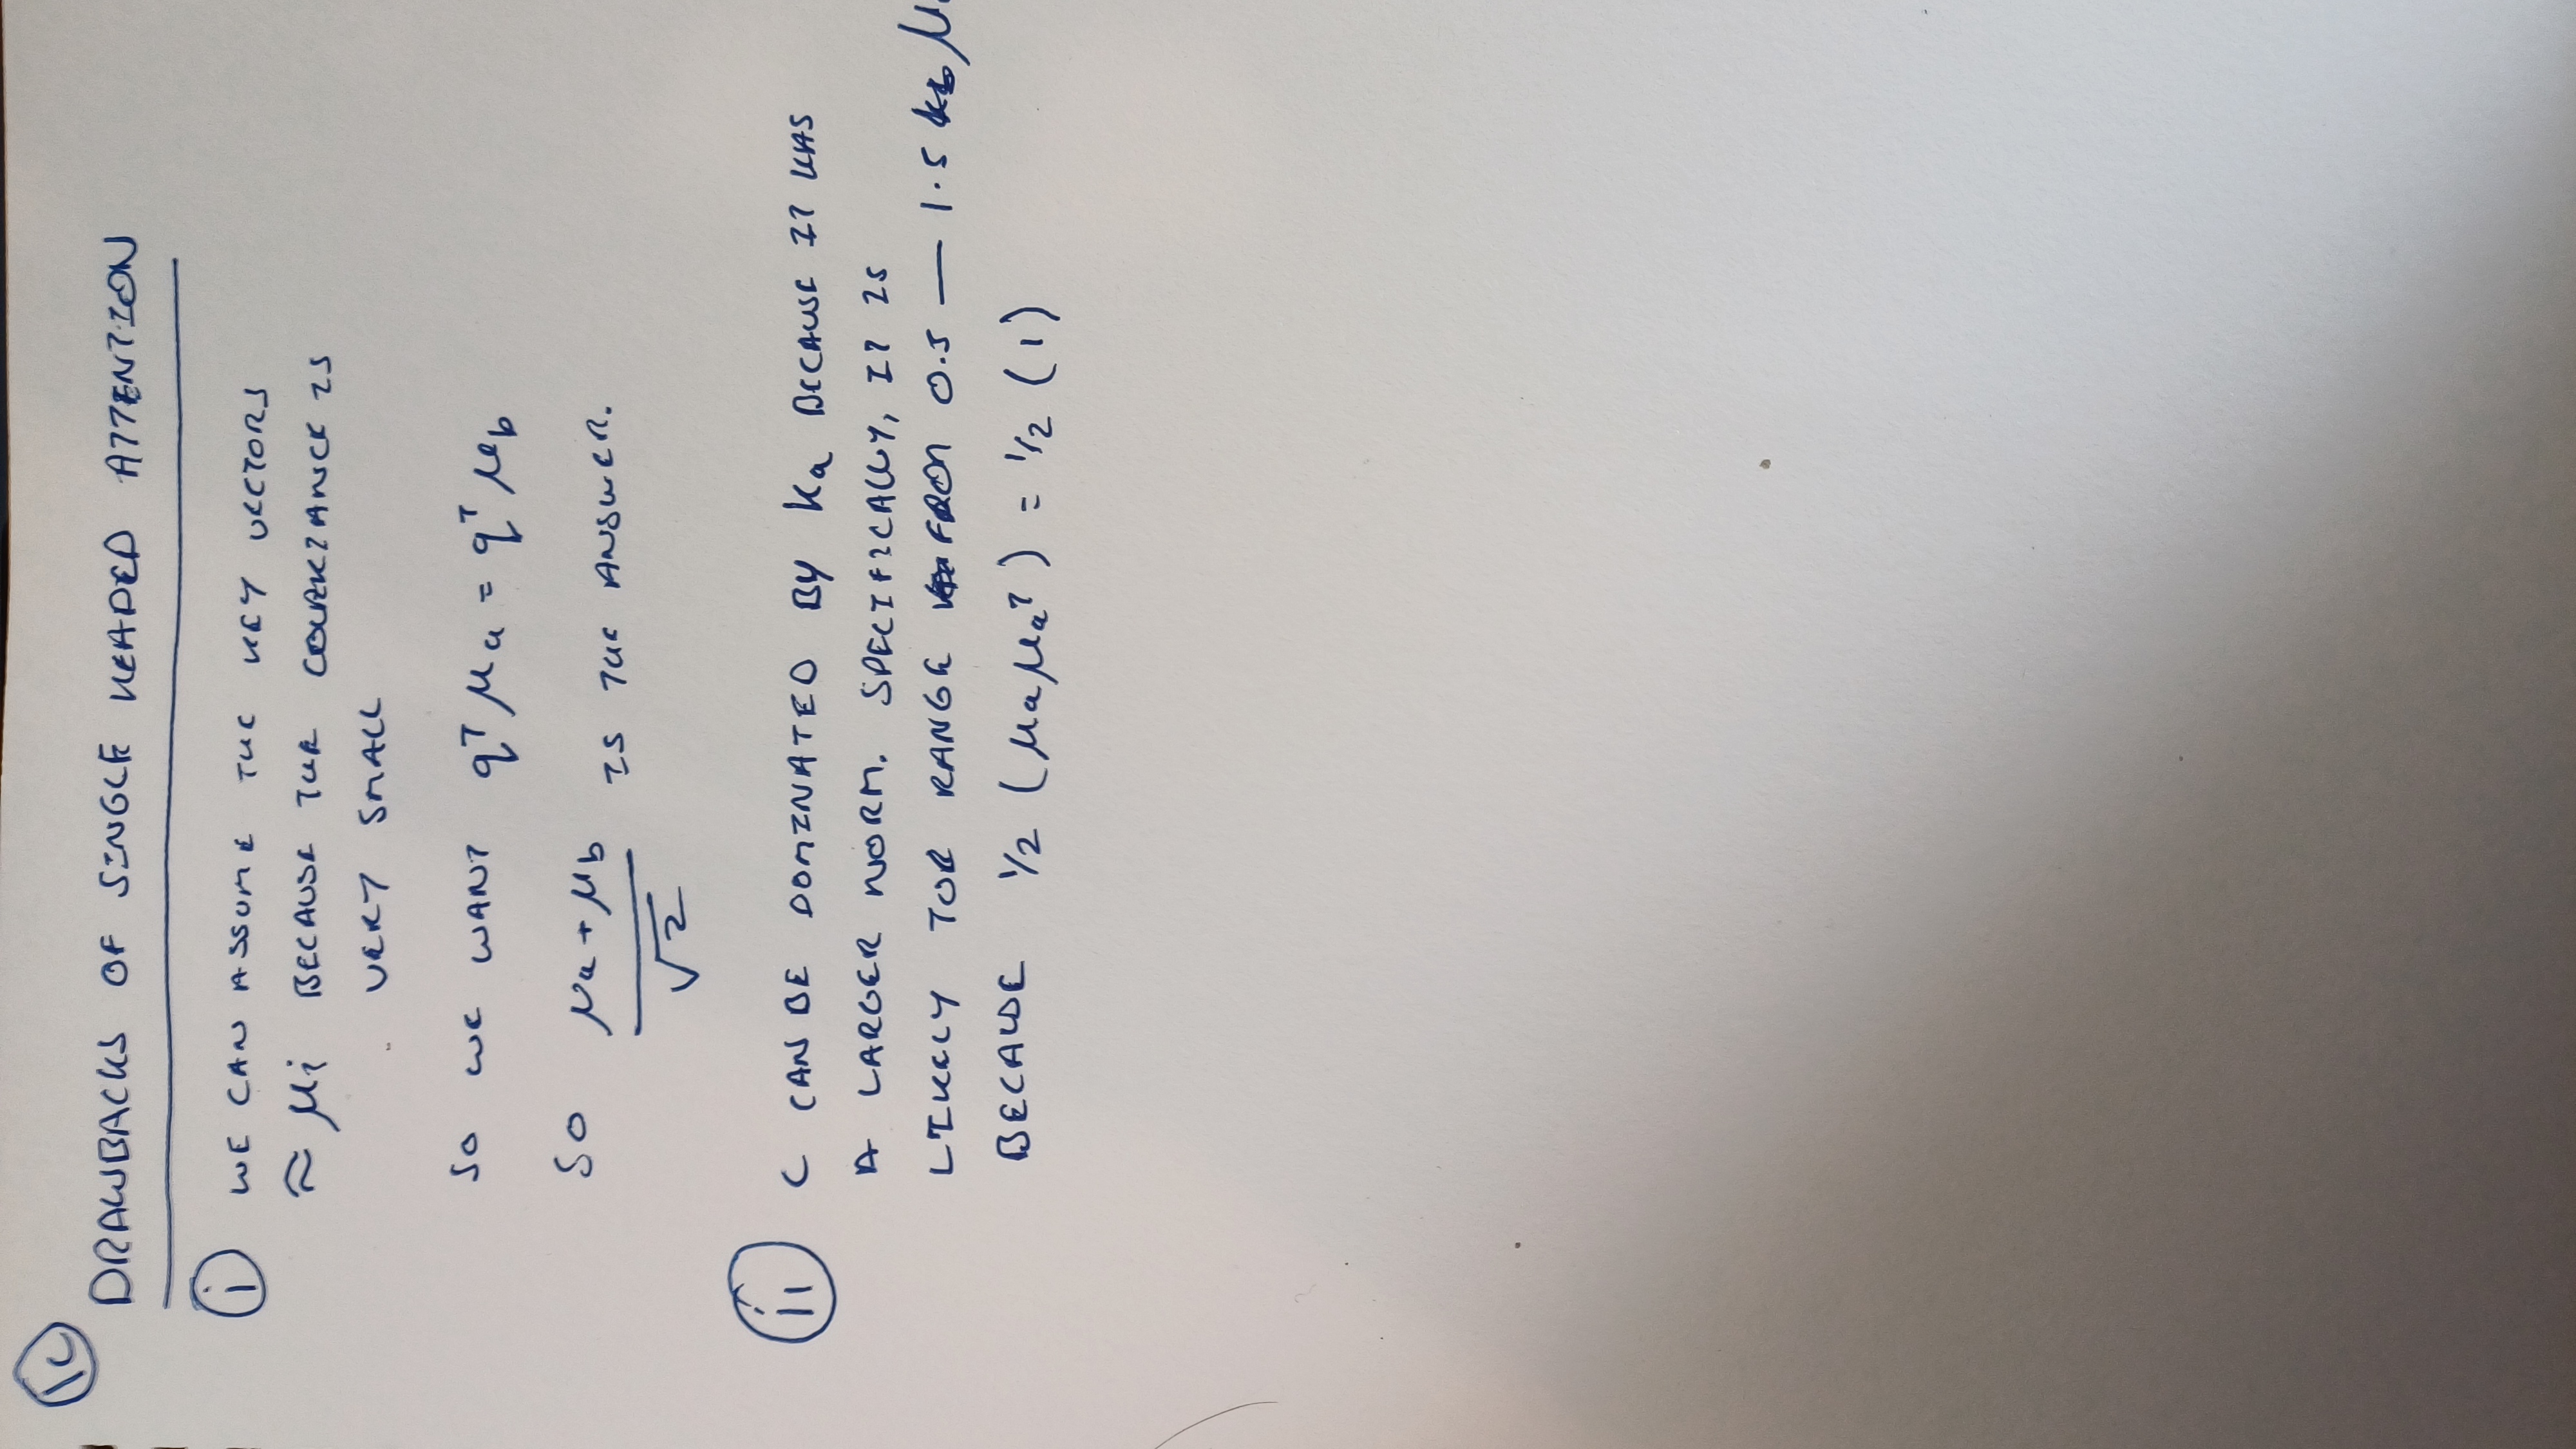 1c
DRAWBACKS OF SINGLE HEADED ATTENTION
i WE CAN ASSUME THE KEY VECTORS
≈ μi BECAUSE THE COVARIANCE IS
VERY SMALL
SO WE WANT qᵀ μa = qᵀ μb
SO μa + μb / √2 IS THE ANSWER.
ii C CAN BE DOMINATED BY Ka BECAUSE IT HAS
A LARGER NORM. SPECIFICALLY, IT IS
LIKELY TOE RANGE FROM 0.5 — 1.5 μ
BECAUSE 1/2 (μa μaᵀ) = 1/2 (1)